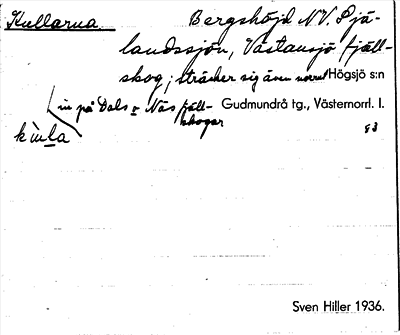 Kullarna Bergshöjd NV. Pjä-
landssjön, Västansjö fjäll-
skog; sträcker sig även norrut Högsjö s:n
in på Dals o Näs fjäll- Gudmundrå tg., Västernorrl. l.
skogar 83
Sven Hiller 1936.